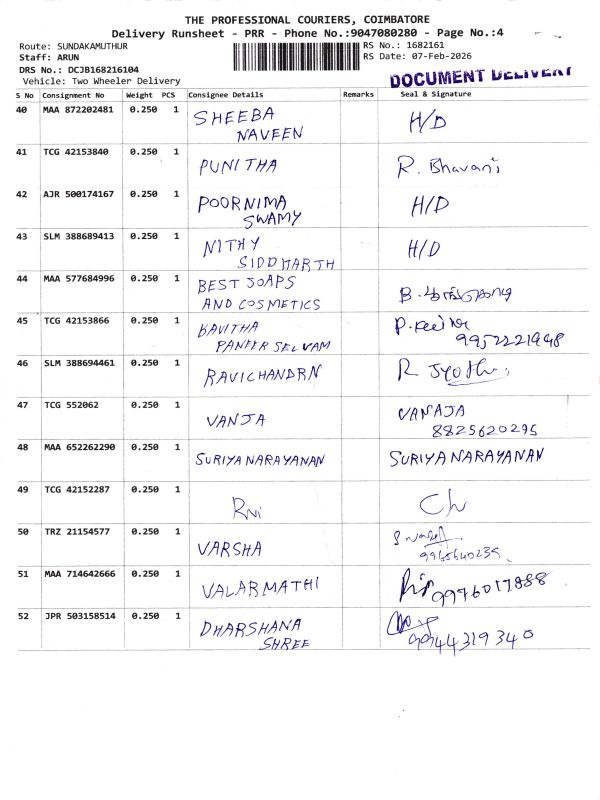 THE PROFESSIONAL COURIERS, COIMBATORE
Delivery Runsheet - PRR - Phone No.:9047080280 - Page No.:4
Route: SUNDAKAMUTHUR
RS No.: 1682161
Staff: ARUN
RS Date: 07-Feb-2026
DRS No.: DCJB168216104
Vehicle: Two Wheeler Delivery
DOCUMENT DELIVERY
S No Consignment No Weight PCS Consignee Details Remarks Seal & Signature
40 MAA 872202481 0.250 1 SHEEBA H/D
NAVEEN
41 TCG 42153840 0.250 1 PUNITHA R. Bhavani
42 AJR 500174167 0.250 1 POORNIMA H/D
SWAMY
43 SLM 388689413 0.250 1 NITHY H/D
SIDDHARTH
44 MAA 577684996 0.250 1 BEST SOAPS B.
AND COSMETICS
45 TCG 42153866 0.250 1 KAVITHA P.
PANEER SELVAM 9952221948
46 SLM 388694461 0.250 1 RAVICHANDRN R Jyothi
47 TCG 552062 0.250 1 VANJA VANAJA
8825620295
48 MAA 652262290 0.250 1 SURIYA NARAYANAN SURIYA NARAYANAN
49 TCG 42152287 0.250 1
50 TRZ 21154577 0.250 1 VARSHA
51 MAA 714642666 0.250 1 VALARMATHI 9976017888
52 JPR 503158514 0.250 1 DHARSHANA
SHREE